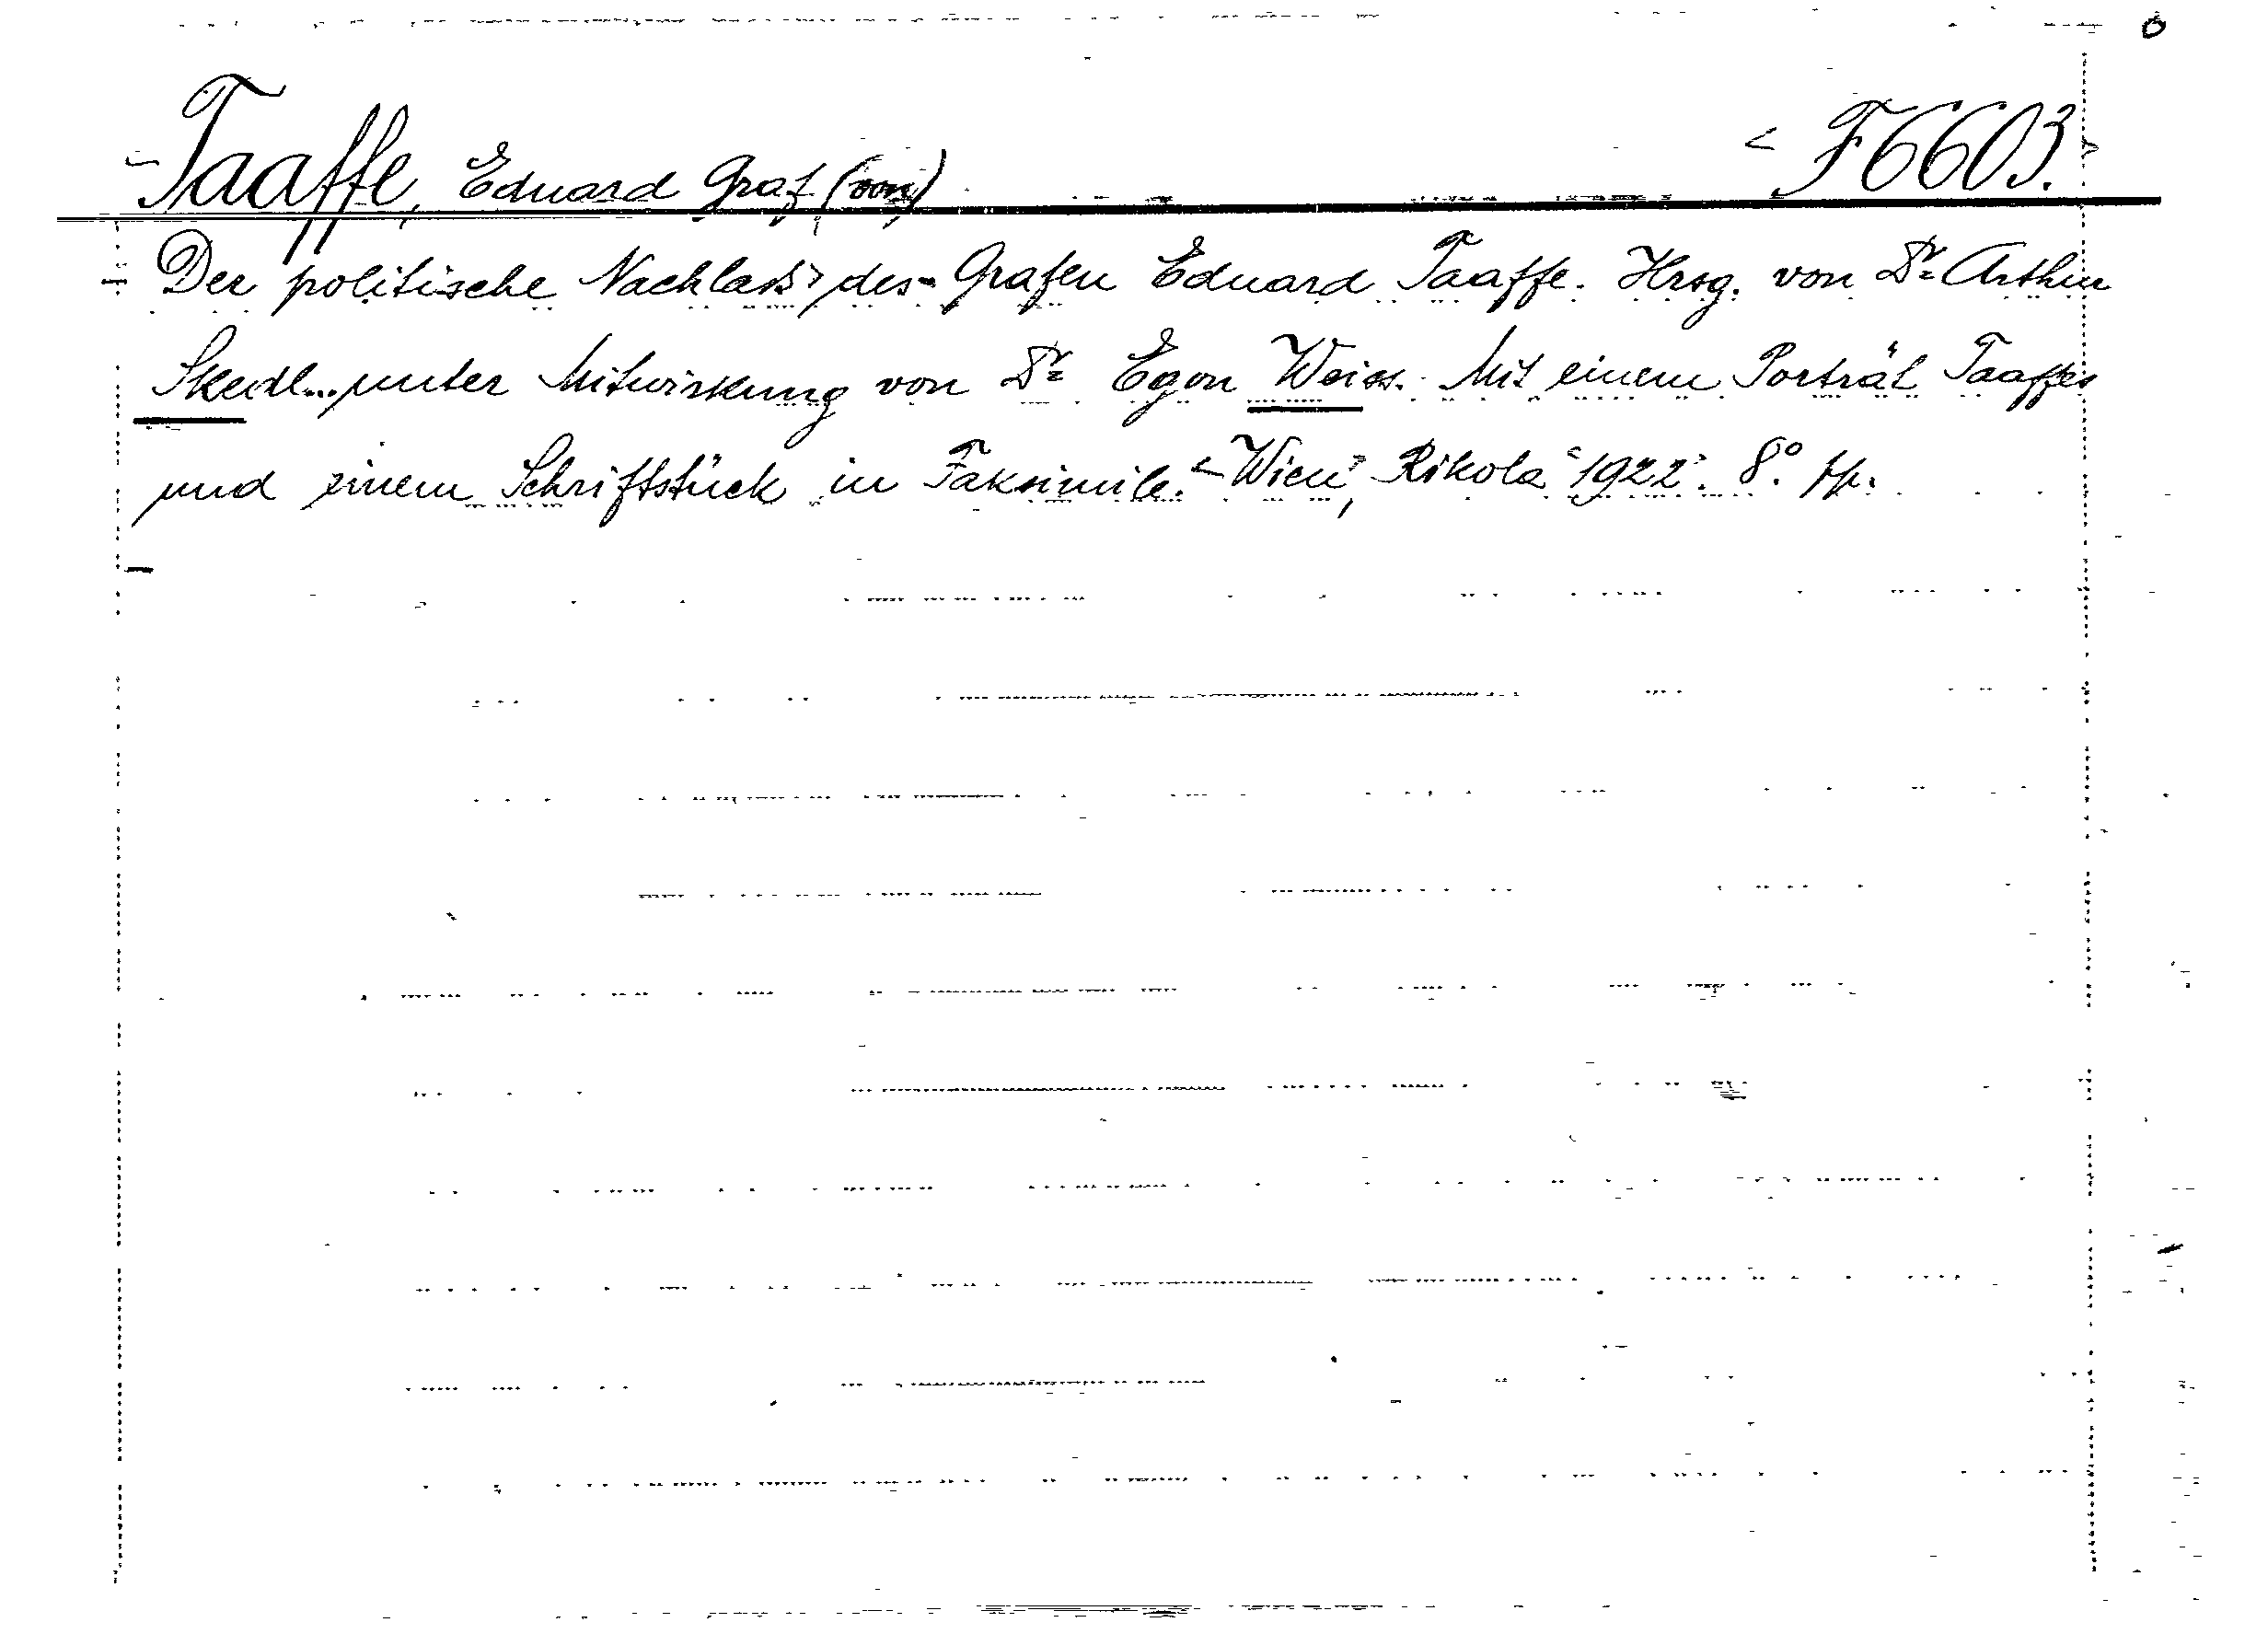 Taaffe, Eduard Graf (von) F6603.
Der politische Nachlaß des Grafen Eduard Taaffe. Hrsg. von Dr. Arthur
Skedl... unter Mitwirkung von Dr. Egon Weiss. Mit einem Porträt Taaffes
und einem Schriftstück in Faksimile. Wien, Rikola 1922. 8°.